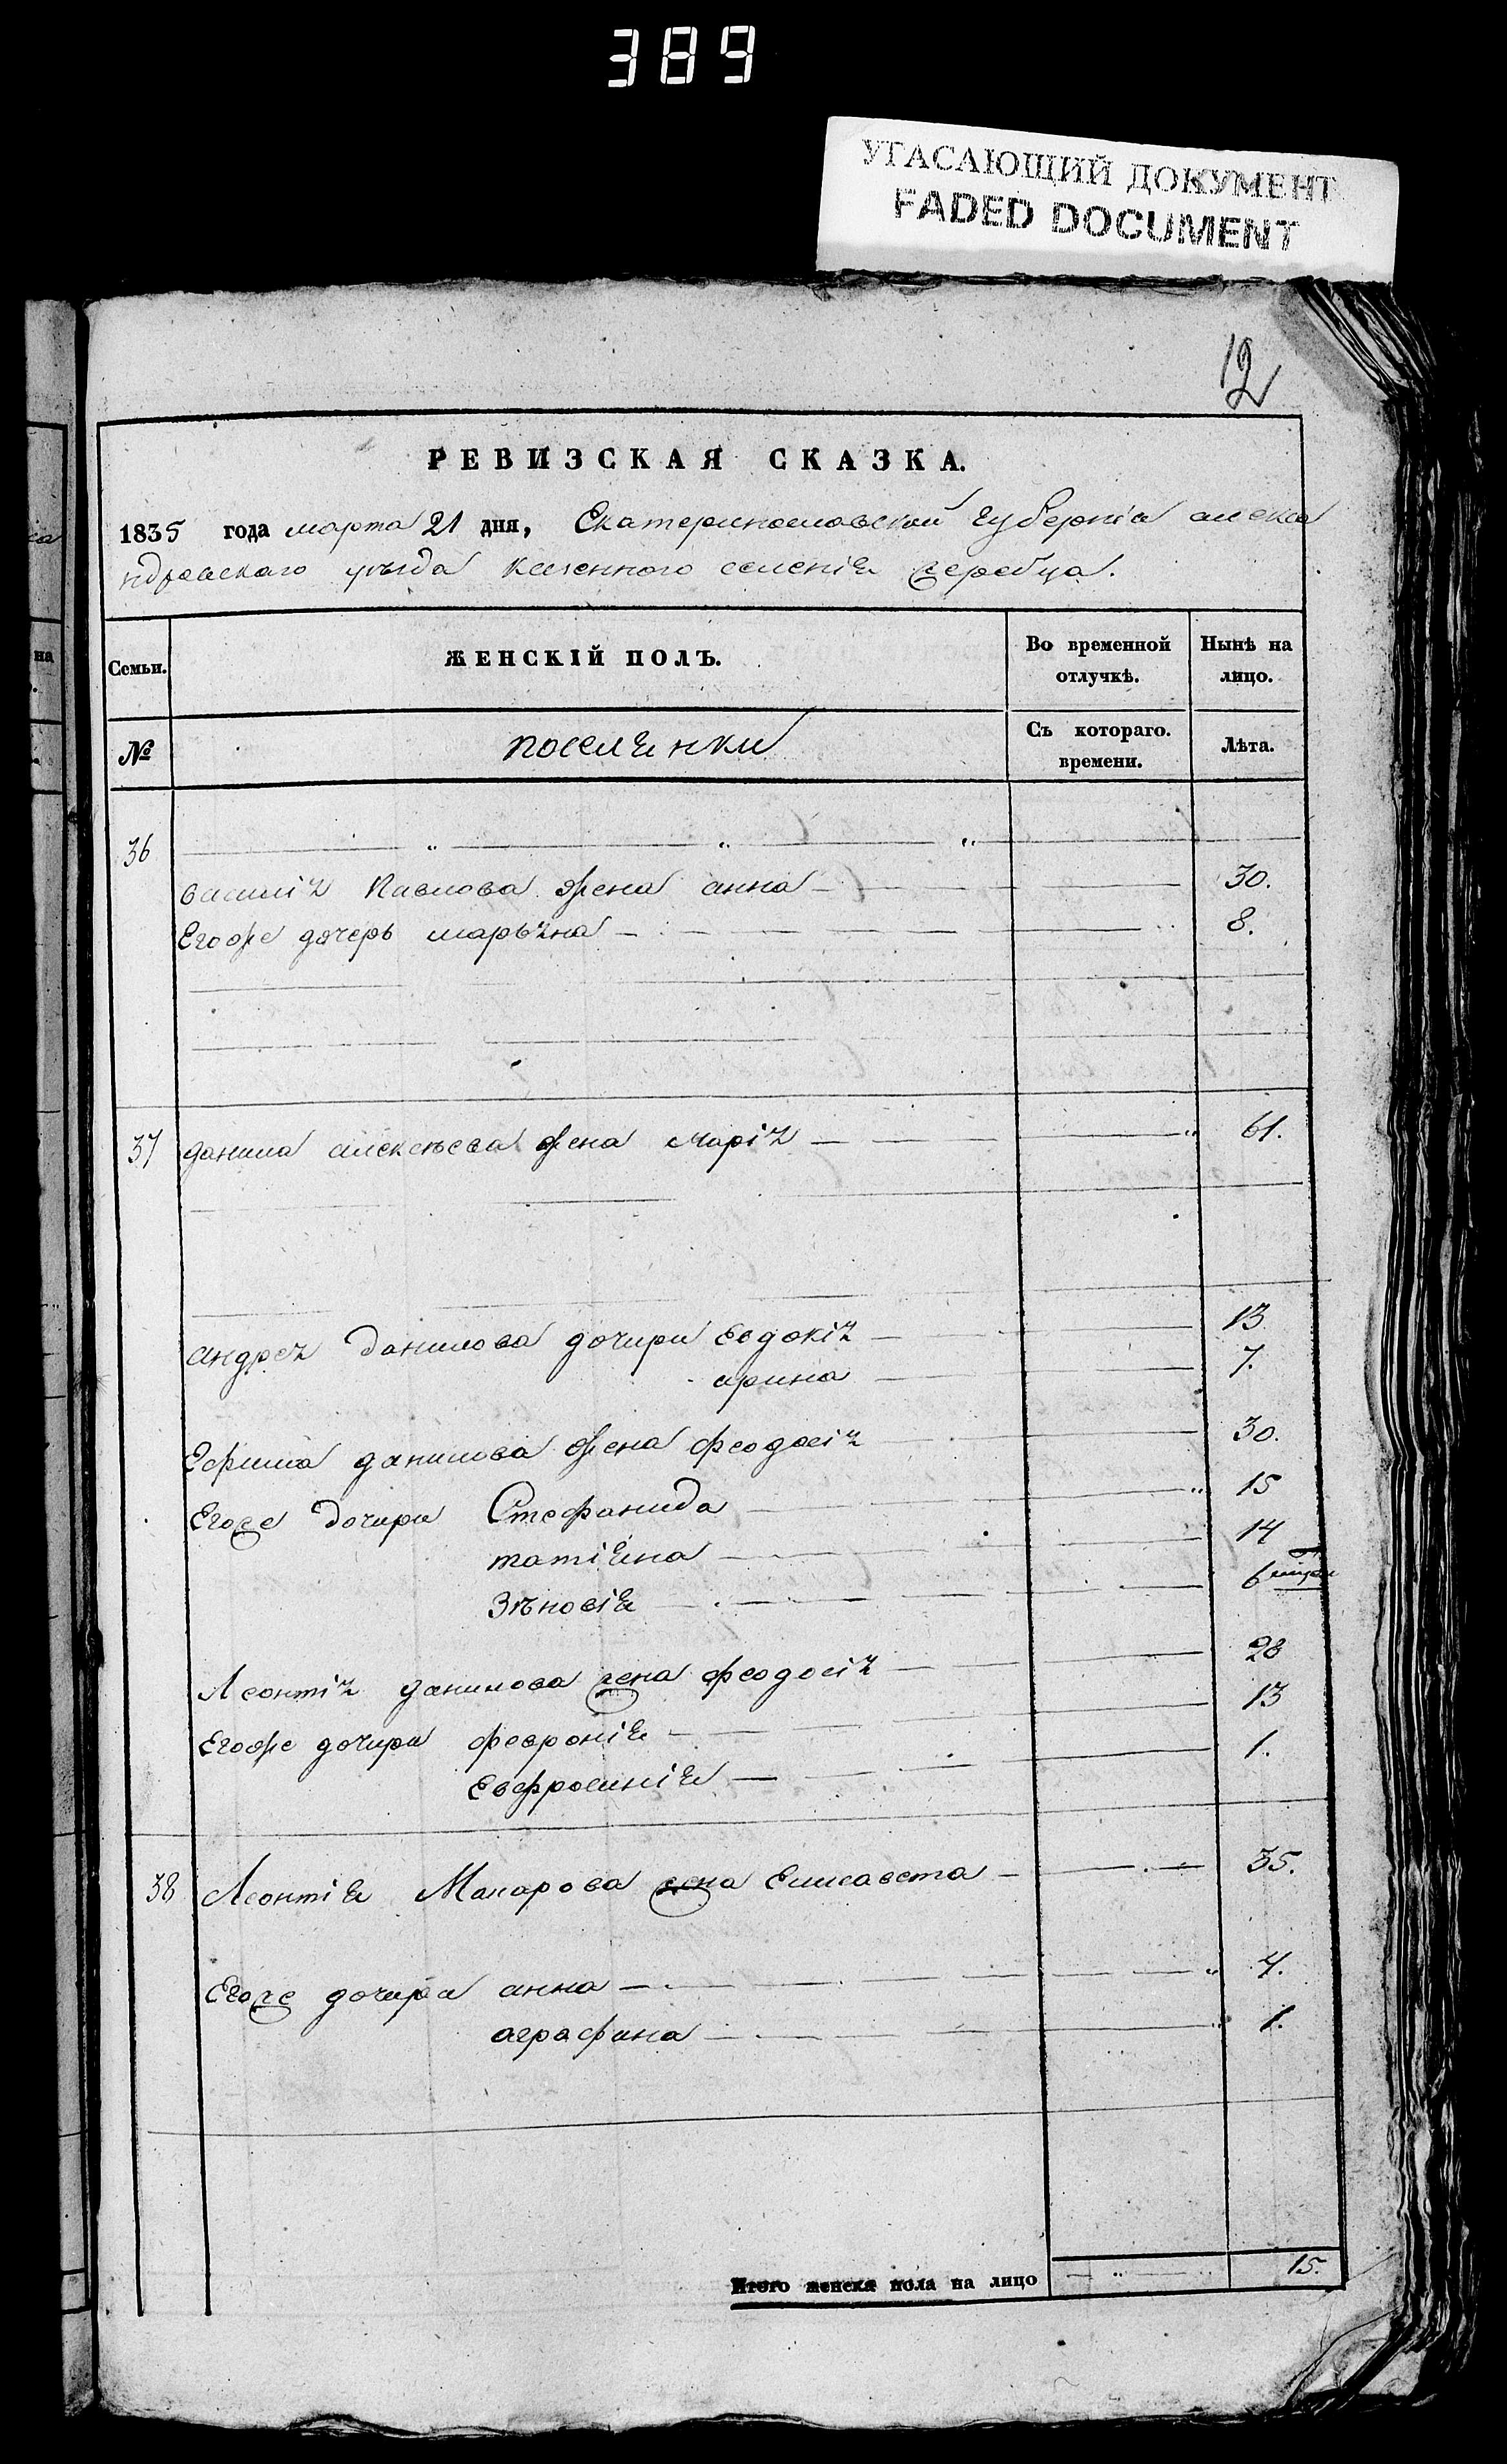 389
УГАСАЮЩИЙ ДОКУМЕНТ
FADED DOCUMENT
12
РЕВИЗСКАЯ СКАЗКА.
1835 года марта 21 дня, Екатеринославской губерніи алекса
ндровскаго уѣзда казенного селенія жеребца.
Семьи.
ЖЕНСКІЙ ПОЛЪ.
Во временной отлучкѣ.
Нынѣ на лицо.
№
поселянки
Съ котораго. времени.
Лѣта.
36
василія Павлова жена анна 30.
Егоже дочерь марьяна 8.
37 данила алексѣева жена марія 61.
андрея данилова дочири Евдокія 13
арина 7.
Ефима данилова жена феодосія 30.
Егоже дочири Стефанида 15
татіяна 14
Зѣновія 6
Леонтія данилова жена феодосія 28
Егоже дочири февронія 13
Евфросинія 1.
38 Леонтія Макарова жена Елисавета 35.
Егоже дочири анна 4.
аграфина 1.
Итого женска пола на лицо 15.